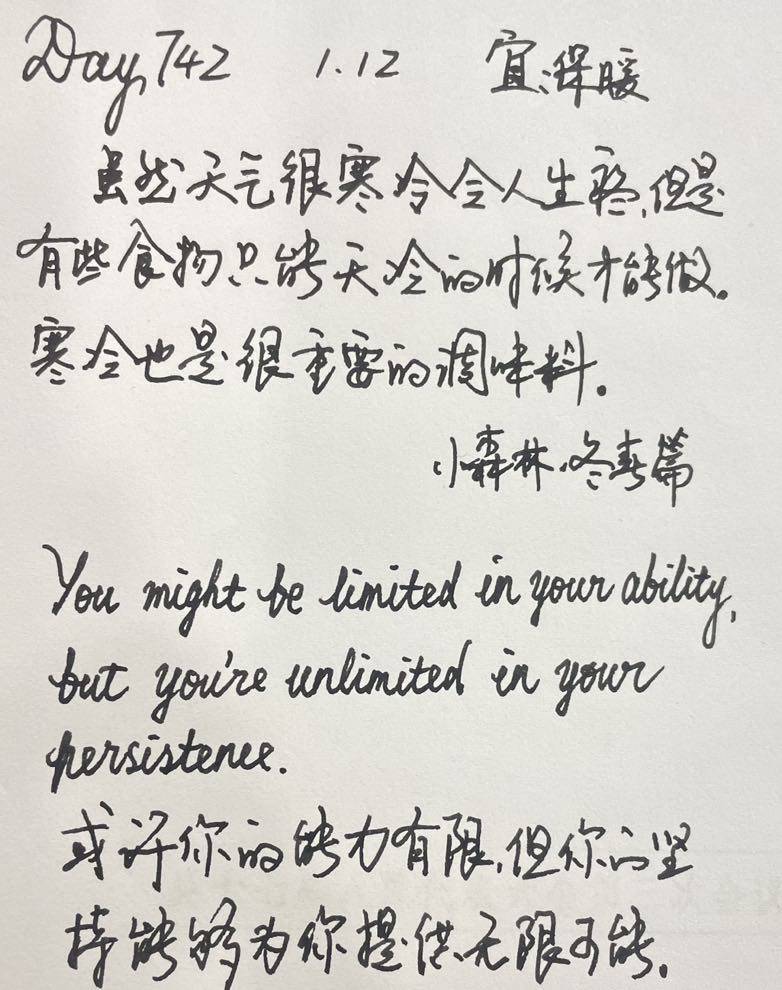 Day 742 1.12 宜:保暖
虽然天气很寒冷令人生疼,但是
有些食物只能天冷的时候才能做。
寒冷也是很重要的调味料。
小森林·冬春篇
You might be limited in your ability,
but you're unlimited in your
persistence.
或许你的能力有限,但你的坚
持能够为你提供无限可能。